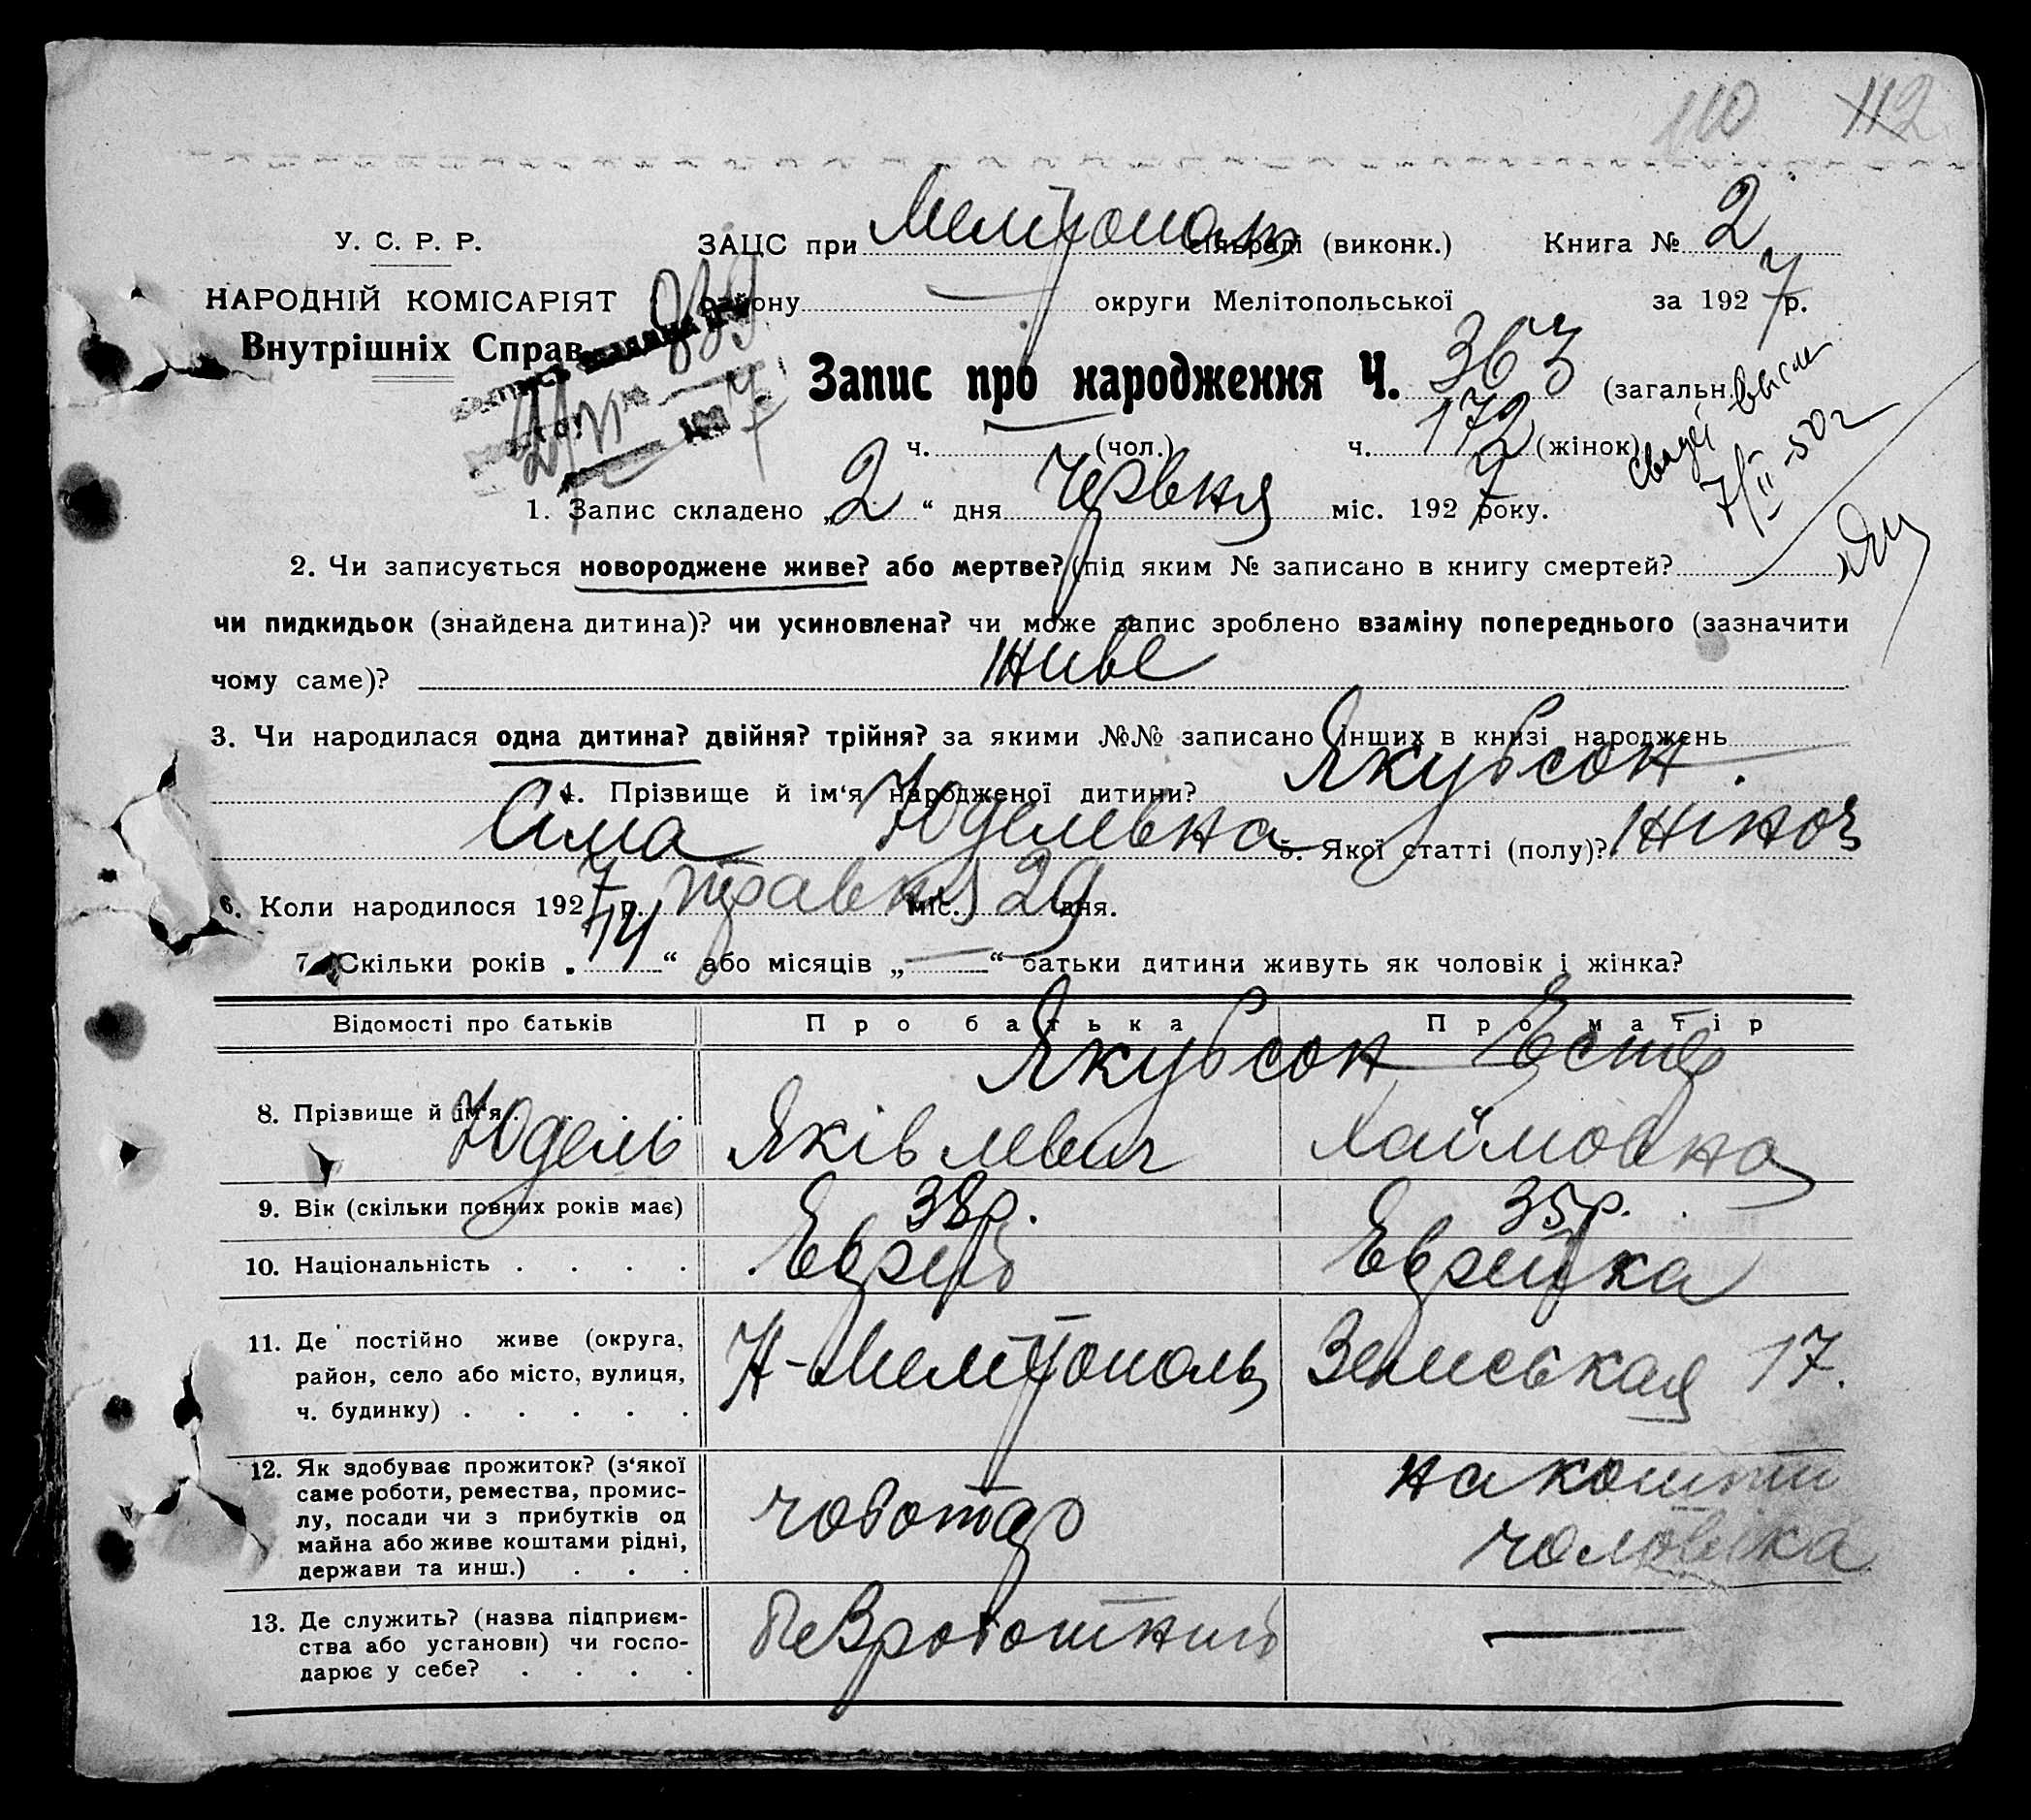 110 112
У. С. Р. Р. ЗАЦС при Мелітополь сільраді (виконк.) Книга № 2
НАРОДНІЙ КОМІСАРІЯТ району — округи Мелітопольської за 1927 р.
Внутрішніх Справ 839
Запис про народження Ч. 363 (загальн.)
ч. — (чол.) ч. 172 (жінок)
7/II-50 г
1. Запис складено „2“ дня Червня міс. 1927 року.
2. Чи записується новороджене живе? або мертве? (під яким № записано в книгу смертей?
чи пидкидьок (знайдена дитина)? чи усиновлена? чи може запис зроблено взаміну попереднього (зазначити
чому саме)? Живе
3. Чи народилася одна дитина? двійня? трійня? за якими №№ записано інших в книзі народжень —
4. Прізвище й ім‘я народженої дитини? Якубсон.
Сіма Юделевна 5. Якої статті (полу)? жіноч
6. Коли народилося 1927 р. травня міс. 29 дня.
7. Скільки років „14“ або місяців „—“ батьки дитини живуть як чоловік і жінка?
Відомості про батьків Про батька Про матір
Якубсон Естер
8. Прізвище й ім‘я . . . . Юдель Яківлевич Хаймовна
9. Вік (скільки повних років має) 38р. 35р.
10. Національність . . . . Еврей Еврейка
11. Де постійно живе (округа,
район, село або місто, вулиця,
ч. будинку) . . . . .
Н-Мелітополь Земськая 17.
12. Як здобуває прожиток? (з‘якої
саме роботи, ремества, промис-
лу, посади чи з прибутків од
майна або живе коштами рідні,
держави та инш.) . . .
чоботар
на кошти
чоловіка
13. Де служить? (назва підприєм-
ства або установи) чи госпо-
дарює у себе? . . . .
Безроботний —